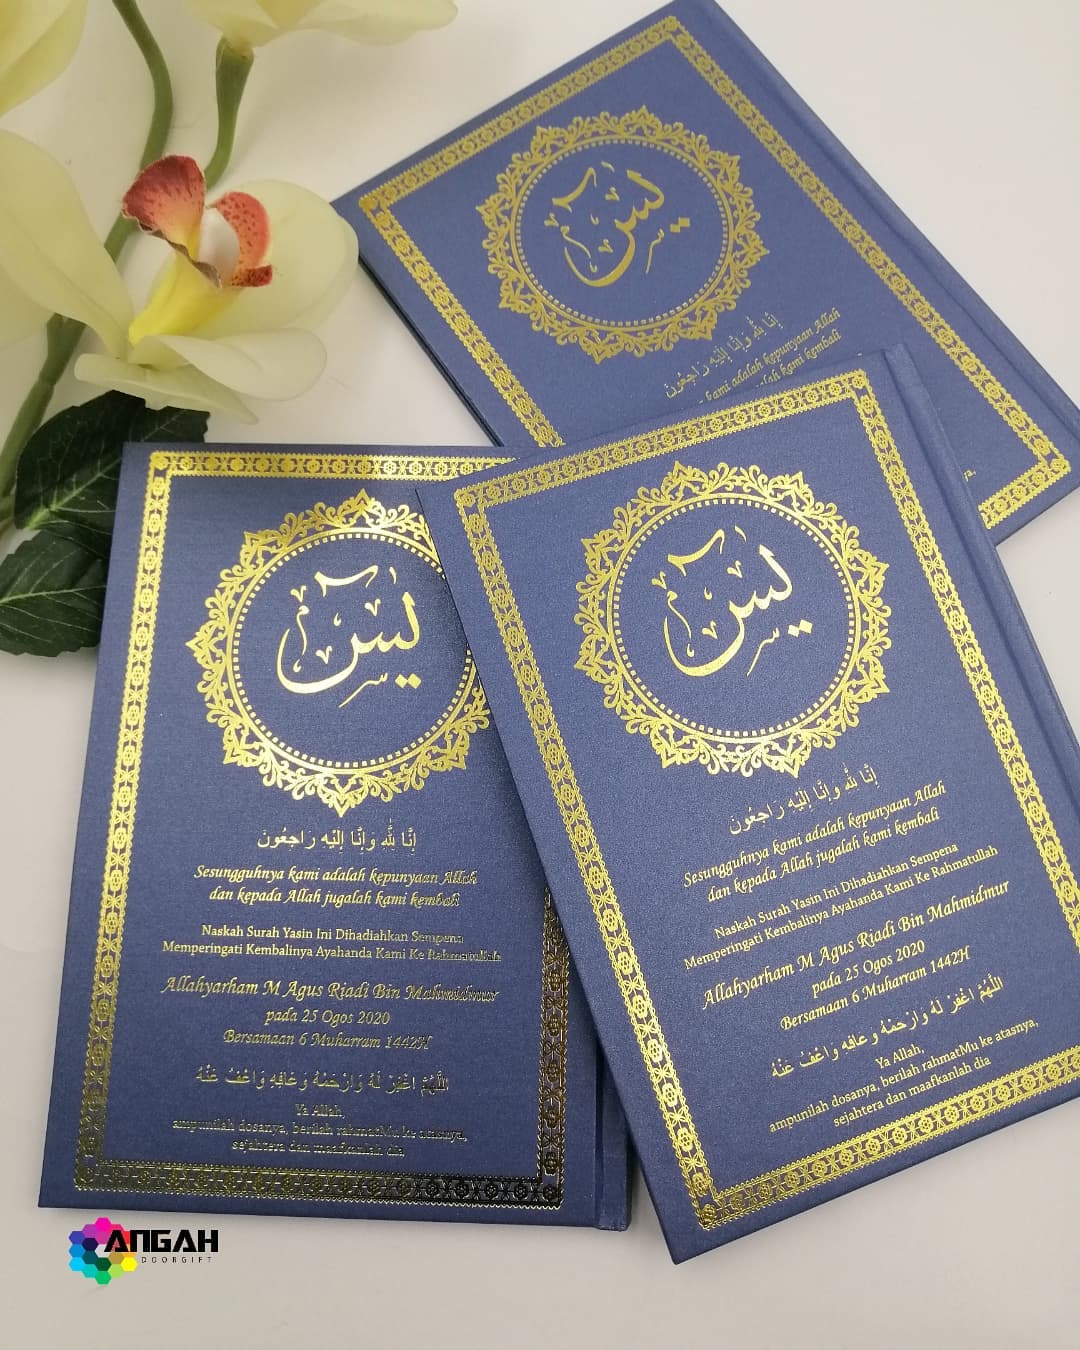 يس
إِنَّا لِلَّٰهِ وَإِنَّا إِلَيْهِ رَاجِعُونَ
kami adalah kepunyaan Allah
jugalah kami kembali
يس
إِنَّا لِلَّٰهِ وَإِنَّا إِلَيْهِ رَاجِعُونَ
Sesungguhnya kami adalah kepunyaan Allah
dan kepada Allah jugalah kami kembali
Naskah Surah Yasin Ini Dihadiahkan Sempena
Memperingati Kembalinya Ayahanda Kami Ke Rahmatullah
Allahyarham M Agus Riadi Bin Mahmidmur
pada 25 Ogos 2020
Bersamaan 6 Muharram 1442H
اللَّهُمَّ اغْفِرْ لَهُ وَارْحَمْهُ وَعَافِهِ وَاعْفُ عَنْهُ
Ya Allah,
ampunilah dosanya, berilah rahmatMu ke atasnya,
sejahtera dan maafkanlah dia
يس
إِنَّا لِلَّٰهِ وَإِنَّا إِلَيْهِ رَاجِعُونَ
Sesungguhnya kami adalah kepunyaan Allah
dan kepada Allah jugalah kami kembali
Naskah Surah Yasin Ini Dihadiahkan Sempena
Memperingati Kembalinya Ayahanda Kami Ke Rahmatullah
Allahyarham M Agus Riadi Bin Mahmidmur
pada 25 Ogos 2020
Bersamaan 6 Muharram 1442H
اللَّهُمَّ اغْفِرْ لَهُ وَارْحَمْهُ وَعَافِهِ وَاعْفُ عَنْهُ
Ya Allah,
ampunilah dosanya, berilah rahmatMu ke atasnya,
sejahtera dan maafkanlah dia
ANGAH
DOORGIFT